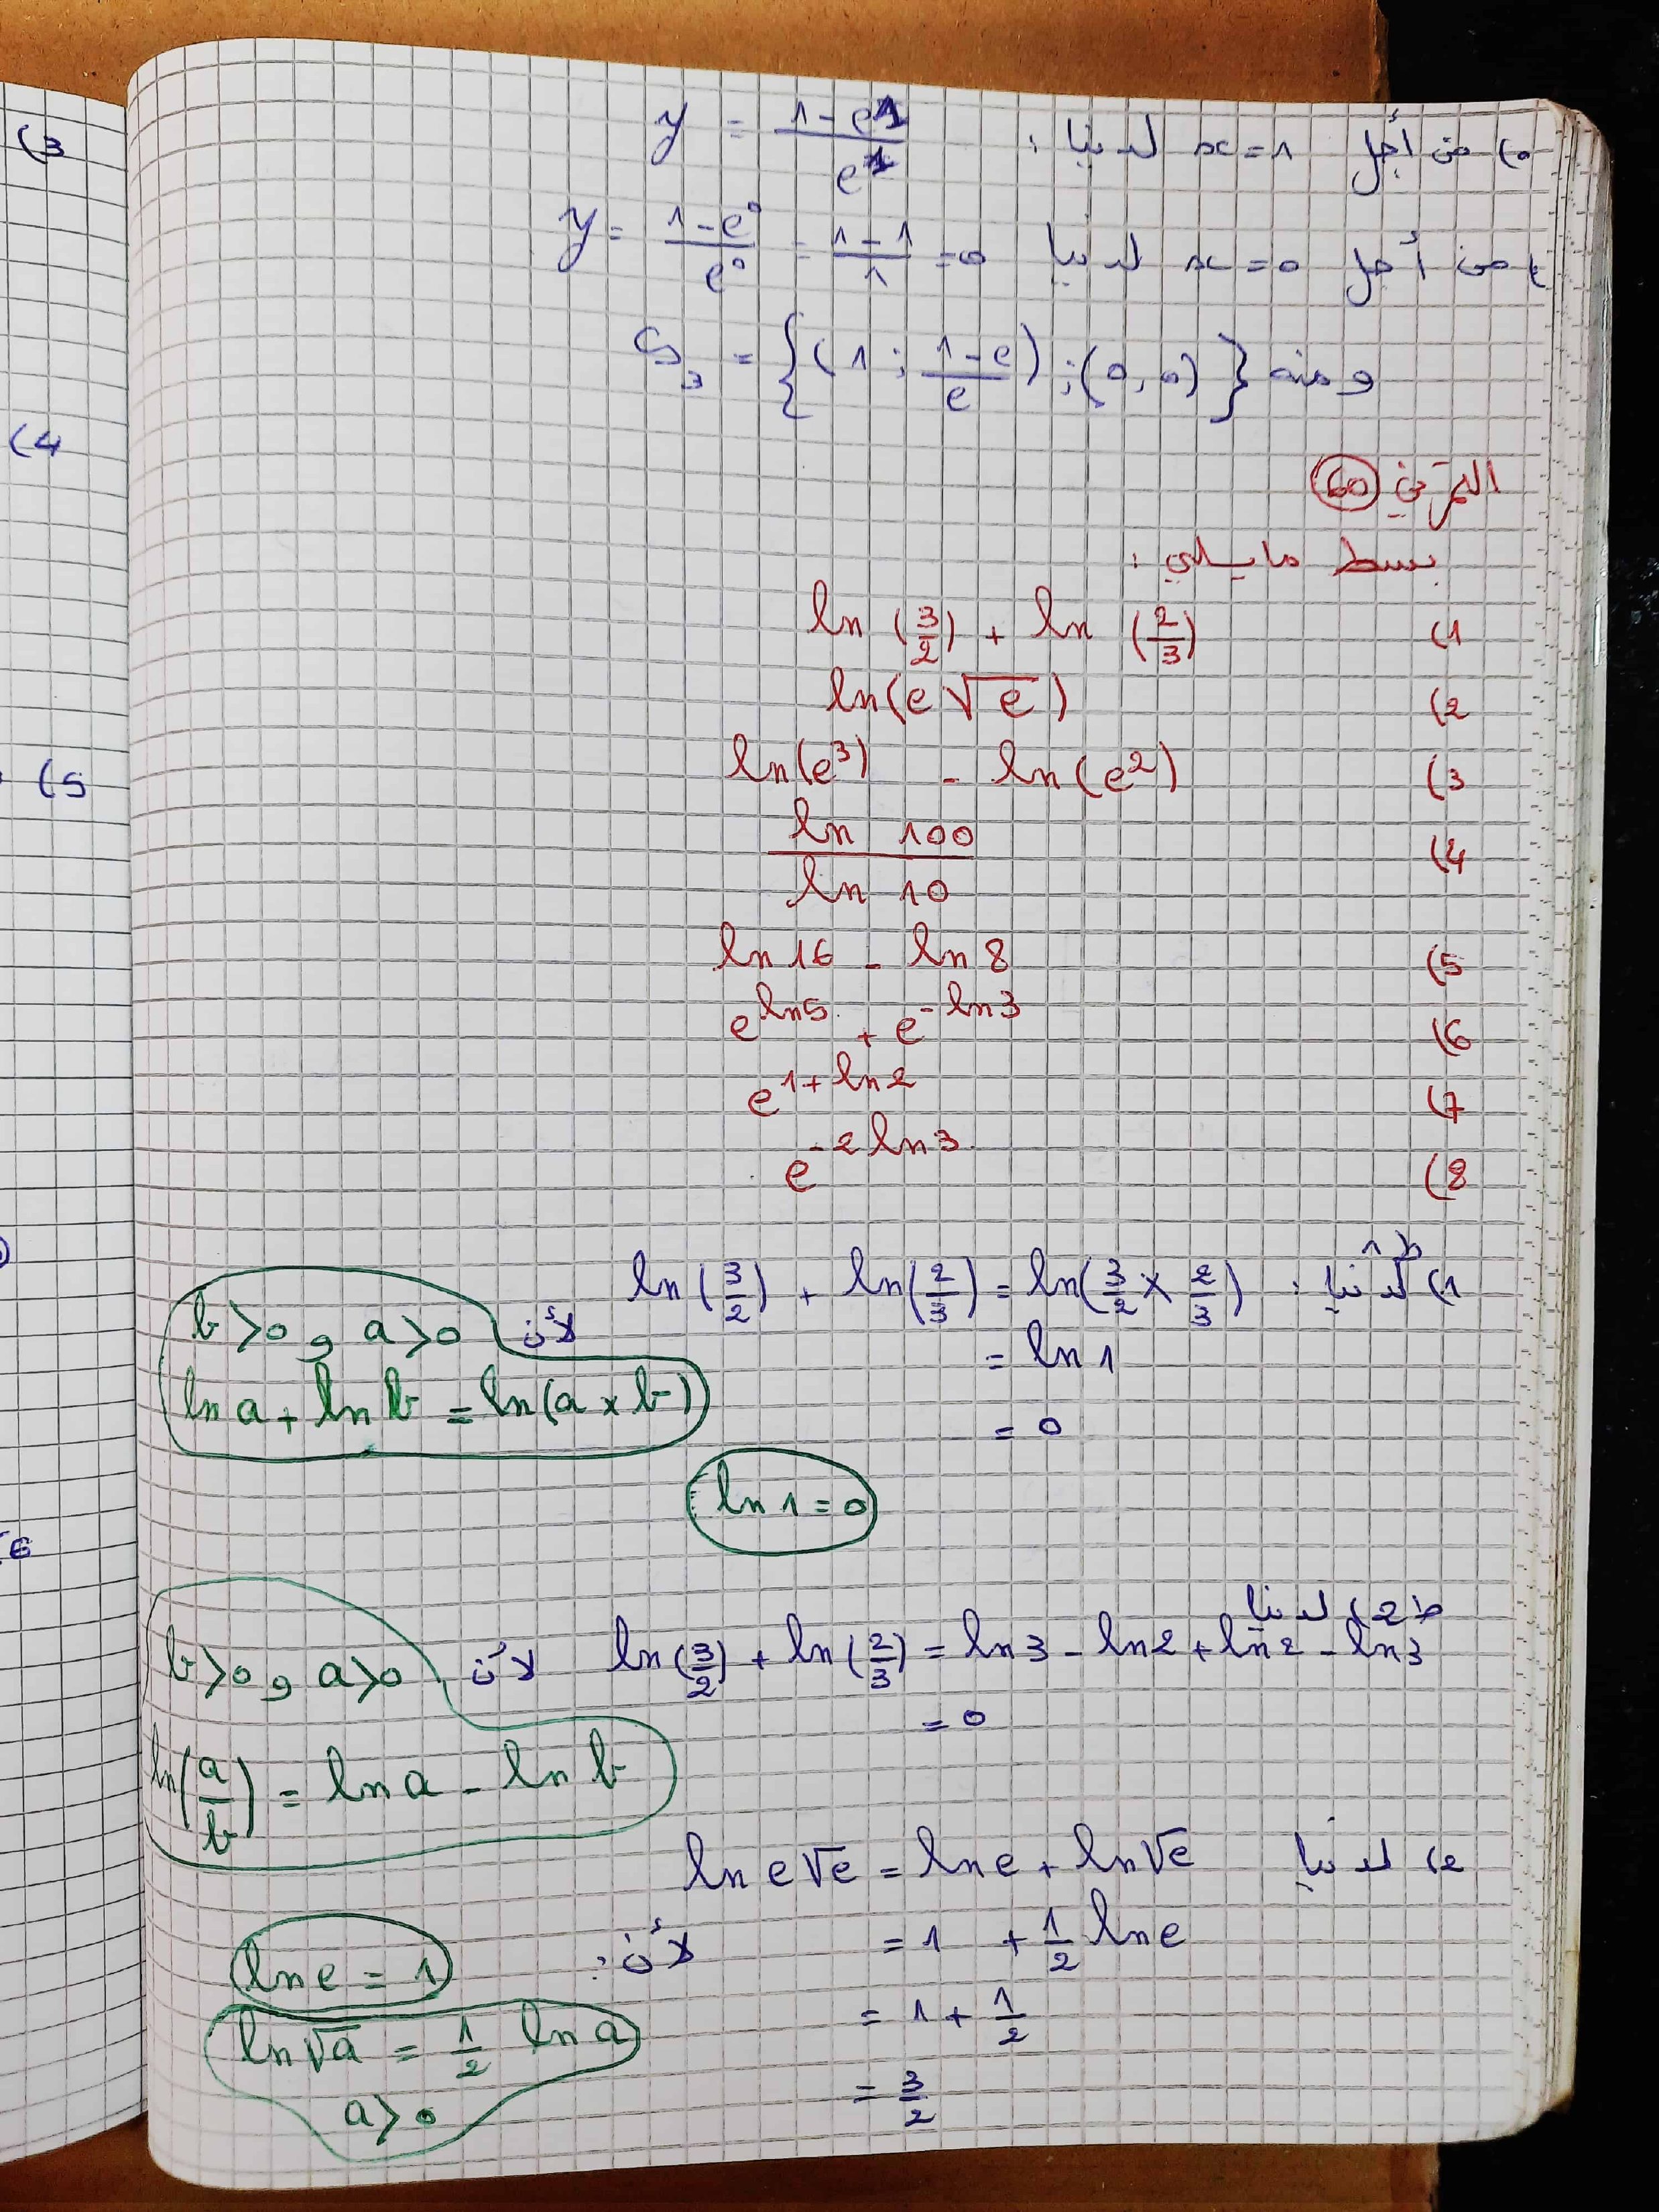 ه) من أجل x=1 لدينا : y = (1-e^1)/(e^1)
من أجل x=0 لدينا y = (1-e^0)/(e^0) = (1-1)/1 = 0
ومنه S_3 = {(1 ; (1-e)/e) ; (0,0)}
التمرين 60
بسط مايلي :
1) ln(3/2) + ln(2/3)
2) ln(e√e)
3) ln(e^3) - ln(e^2)
4) ln 100 / ln 10
5) ln 16 - ln 8
6) e^(ln5) + e^(-ln3)
7) e^(1+ln2)
8) e^(-2ln3)
ط1
1) لدينا : ln(3/2) + ln(2/3) = ln(3/2 × 2/3)
= ln 1
= 0
لأن b>0 و a>0
ln a + ln b = ln(a×b)
ln 1 = 0
ط2) لدينا
ln(3/2) + ln(2/3) = ln3 - ln2 + ln2 - ln3
= 0
لأن b>0 و a>0
ln(a/b) = ln a - ln b
2) لدينا ln e√e = ln e + ln√e
= 1 + 1/2 ln e
= 1 + 1/2
= 3/2
لأن :
ln e = 1
ln√a = 1/2 ln a
a>0
(3
(4
(5